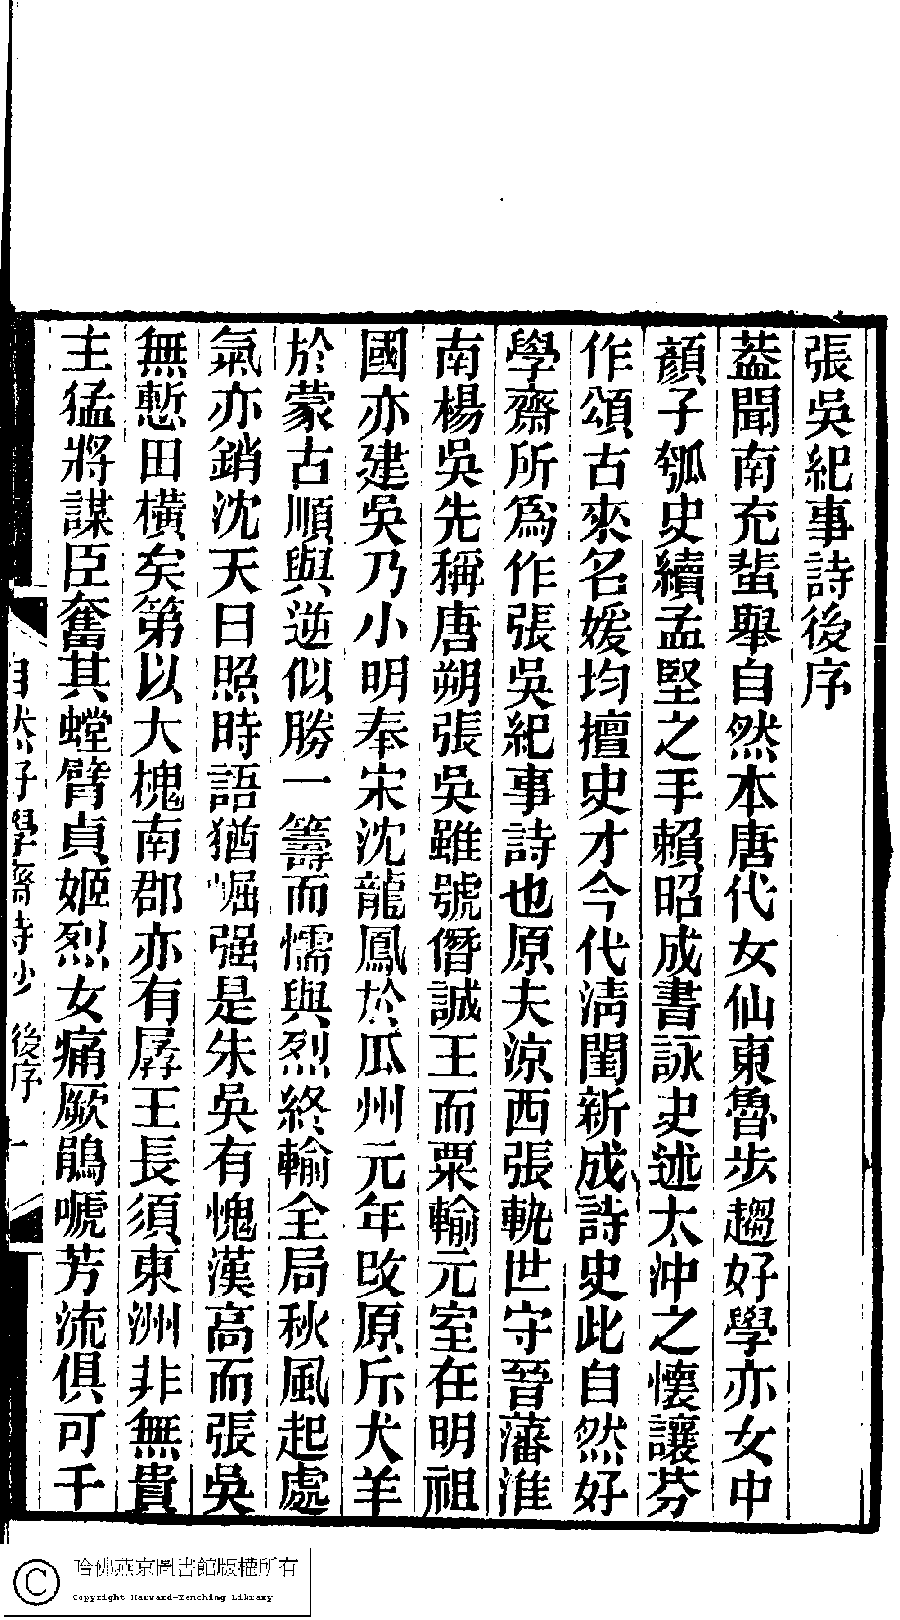 張吳紀事詩後序
葢聞南充蜚舉自然本唐代女仙東魯步趨好學亦女中
顏子瓠史續孟堅之手賴昭成書詠史述太沖之懷讓芬
作頌古來名媛均擅史才今代淸閨新成詩史此自然好
學齋所爲作張吳紀事詩也原夫涼西張軌世守晉藩淮
南楊吳先稱唐朔張吳雖號僭誠王而粟輸元室在明祖
國亦建吳乃小明奉宋沈龍鳳於瓜州元年改原斥犬羊
於蒙古順與逆似勝一籌而懦與烈終輸全局秋風起處
氣亦銷沈天日照時語猶崛强是朱吳有愧漢高而張吳
無慙田橫矣第以大槐南郡亦有孱王長須東洲非無貴
主猛將謀臣奮其螳臂貞姬烈女痛厥鵑嗁芳流俱可千
自然好學齋詩鈔 後序 一
哈佛燕京圖書館版權所有
Copyright Harvard-Yenching Library